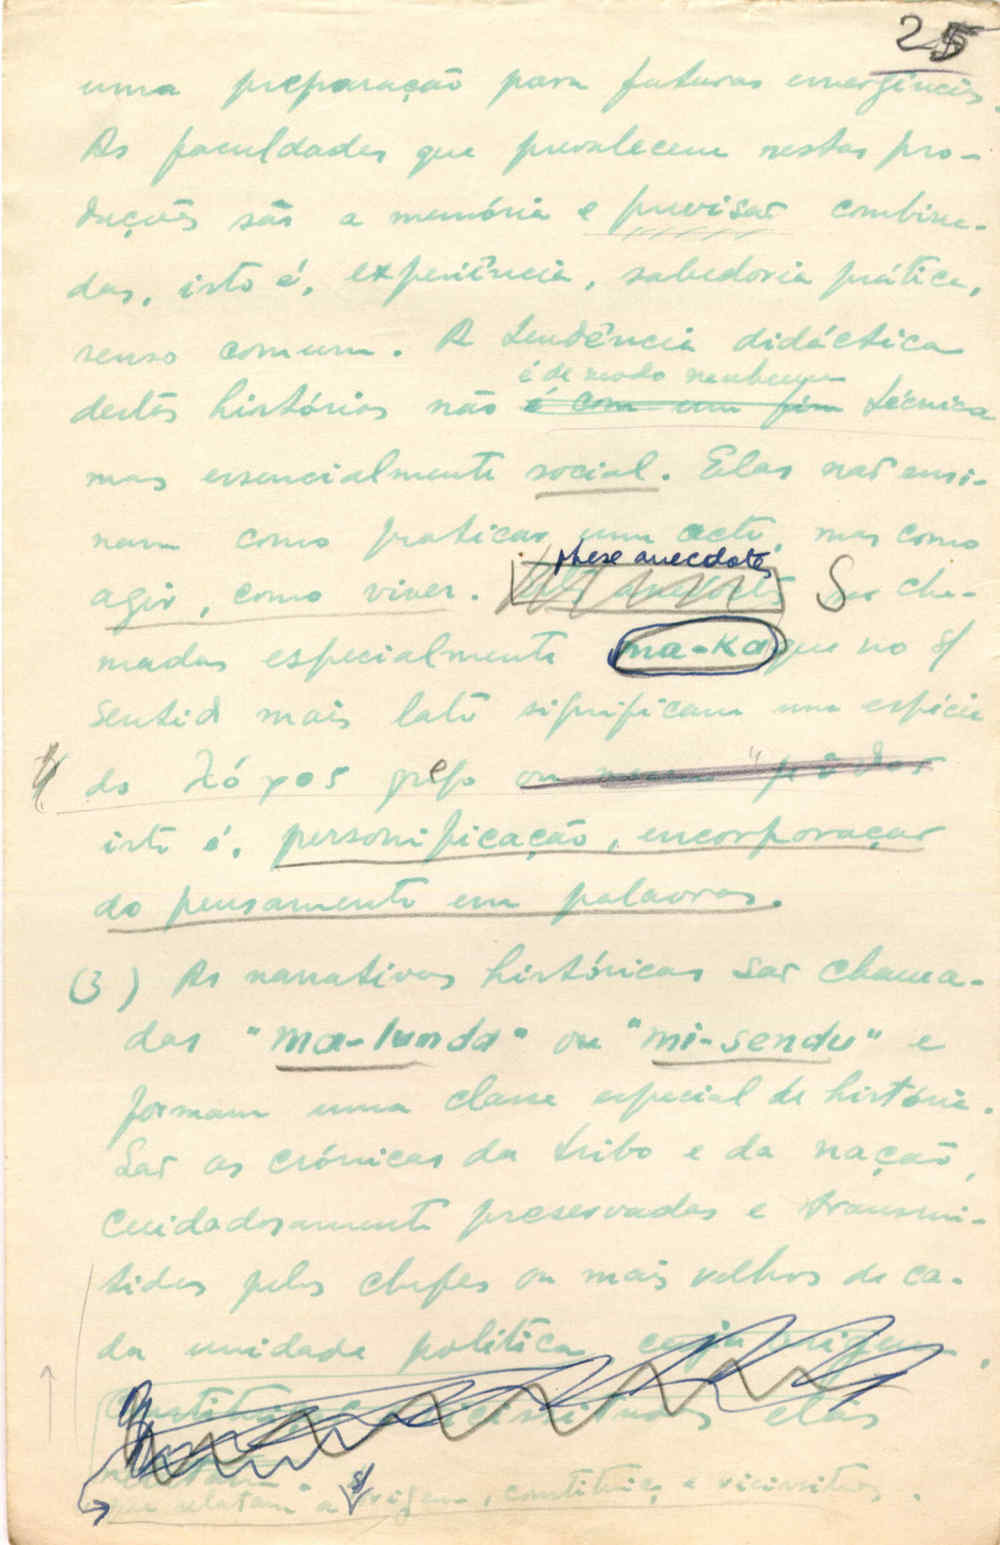 25
uma preparação para futuras emergências.
As faculdades que prevalecem nestas pro-
duções são a memória e previsão combina-
das, isto é, experiência, sabedoria prática,
senso comum. A tendência didáctica
é de modo nenhum
destas histórias não é com um fim técnica
mas essencialmente social. Elas não ensi-
nam como praticar um acto, mas como
these anecdotes
agir, como viver. São cha-
madas especialmente ma-ka que no s/
sentido mais lato significam uma espécie
do λόγος grego ou
isto é, personificação, encorporação
do pensamento em palavras.
(3) As narrativas históricas são chama-
das "ma-lunda" ou "mi-sendu" e
formam uma classe especial de história.
São as crónicas da tribo e da nação,
cuidadosamente preservadas e transmi-
tidas pelos chefes ou mais velhos de ca-
da unidade política cuja origem,
elas
relatam
que relatam a s/ origem, constituição e vicissitudes.